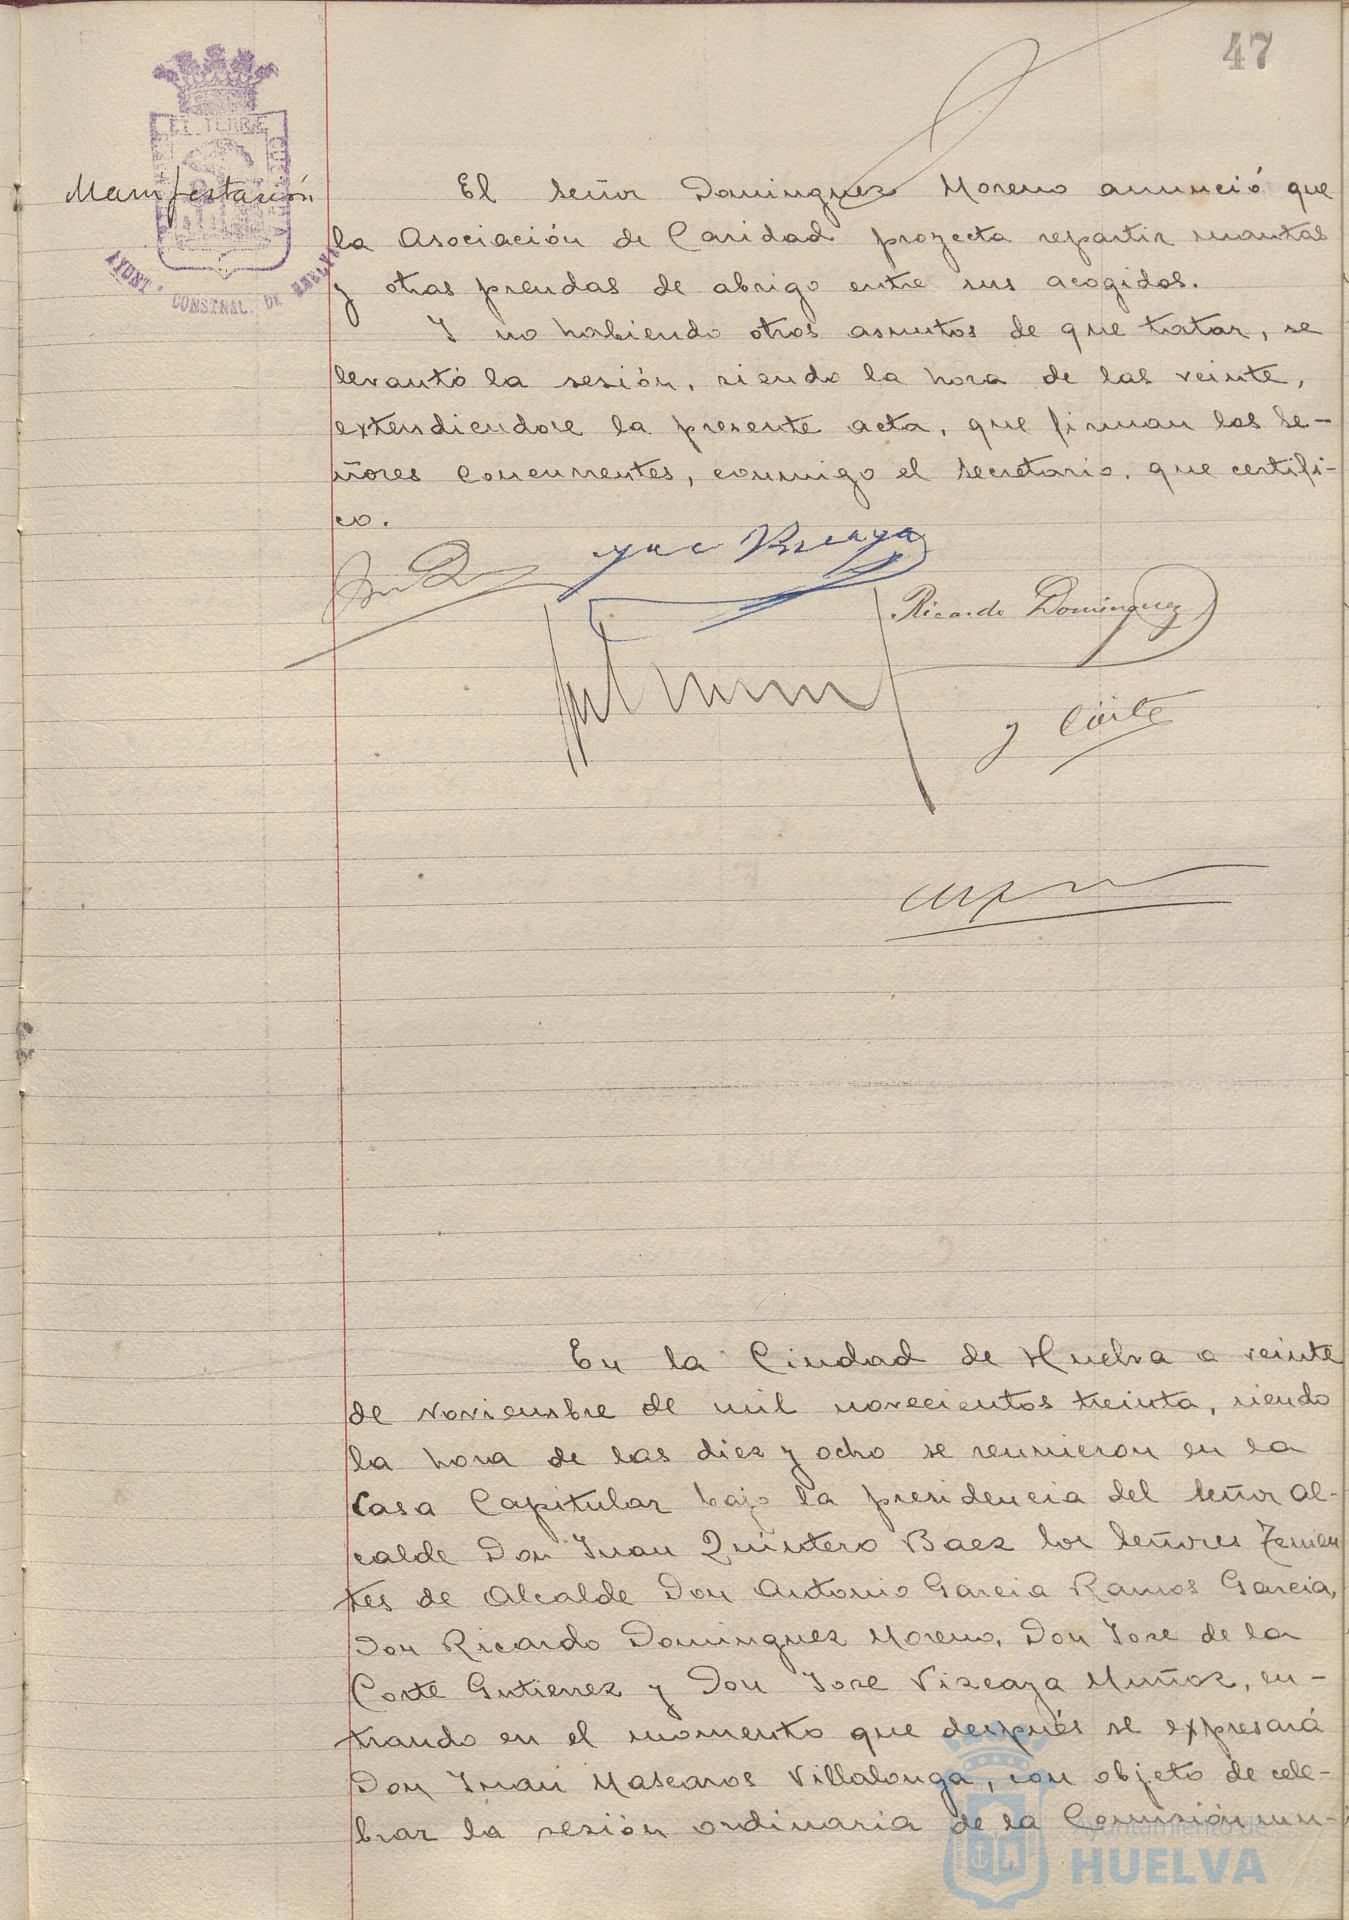 47
Manifestación
El Señor Dominguez Moreno anunció que
la Asociación de Caridad proyecta repartir mantas
y otras prendas de abrigo entre sus acogidos.
Y no habiendo otros asuntos de que tratar, se
levantó la sesión, siendo la hora de las veinte,
extendiendose la presente acta, que firman los Se-
ñores Concurrentes, conmigo el Secretario, que certifi-
co.
Ricardo Dominguez
En la Ciudad de Huelva a veinte
de Noviembre de mil novecientos treinta, siendo
la hora de las diez y ocho se reunieron en la
Casa Capitular bajo la presidencia del Señor Al-
calde Don Juan Quintero Baez los Señores Tenien
tes de Alcalde Don Antonio Garcia Ramos Garcia,
Don Ricardo Dominguez Moreno, Don Jose de la
Corte Gutierrez y Don Jose Vizcaya Muñoz, en-
trando en el momento que después se expresará
Don Juan Mascaros Villalonga, con objeto de cele-
brar la sesión ordinaria de la Comisión mu-
AYUNT° CONSTNAL. DE HUELVA
Ayuntamiento de
HUELVA